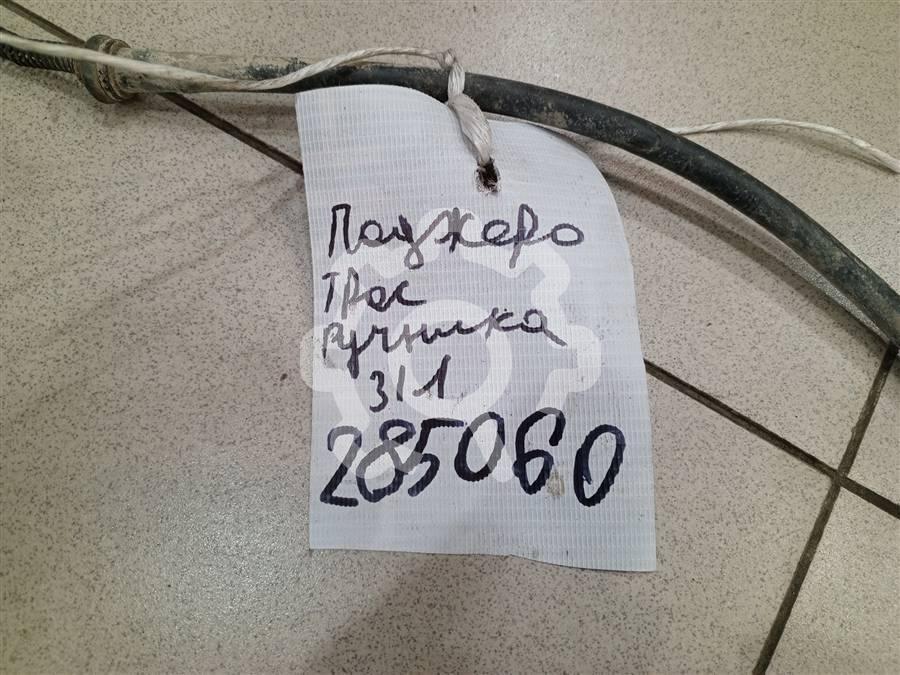 Паджеро
Трос
ручника
3/1
285060